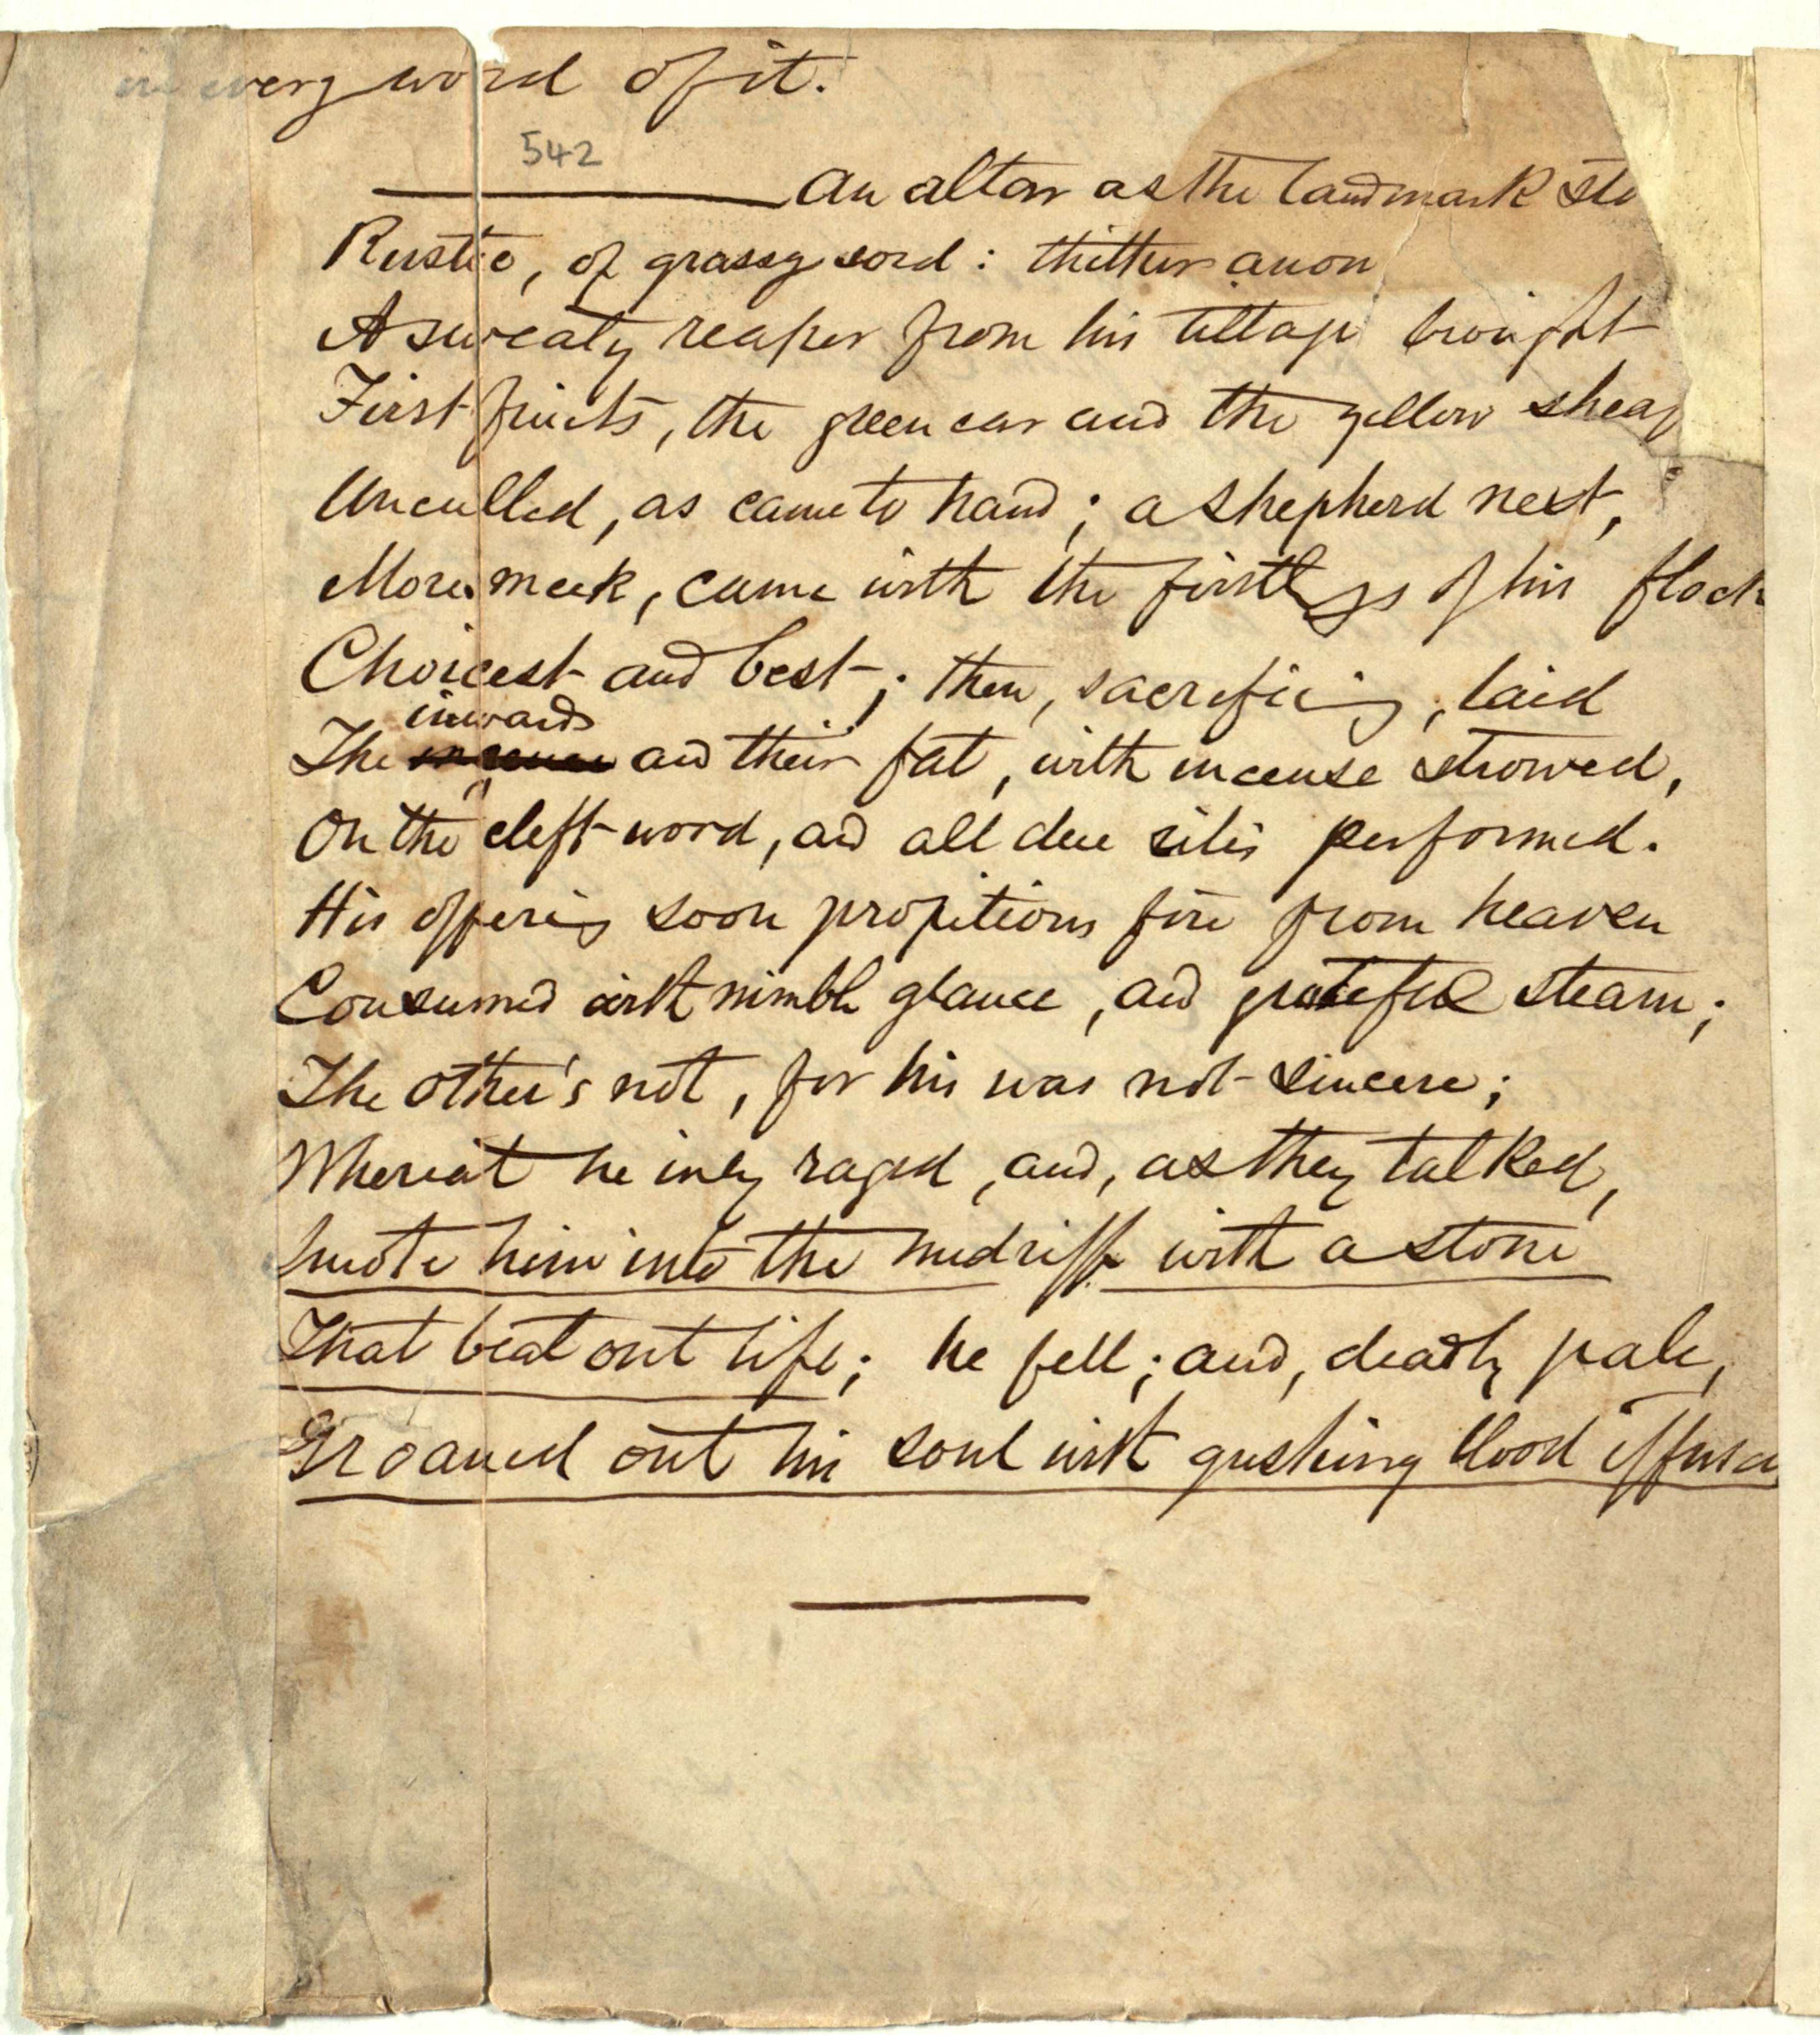 on every word of it.
542
An altar as the landmark sto
Rustic, of grassy sord: thither anon
A sweaty reaper from his tillage brought
First fruits, the green ear and the yellow sheaf
Unculled, as came to hand; a shepherd next,
More meek, came with the firstlings of his flock
Choicest and best; then, sacrificing, laid
inwards
The and their fat, with incense strowed,
On the cleft wood, and all due rites performed.
His offering soon propitious fire from heaven
Consumed with nimble glance, and grateful steam;
The other's not, for his was not sincere;
Whereat he inly raged, and, as they talked,
Smote him into the midriff with a stone
That beat out life; he fell; and, deadly pale,
Groaned out his soul with gushing blood effused